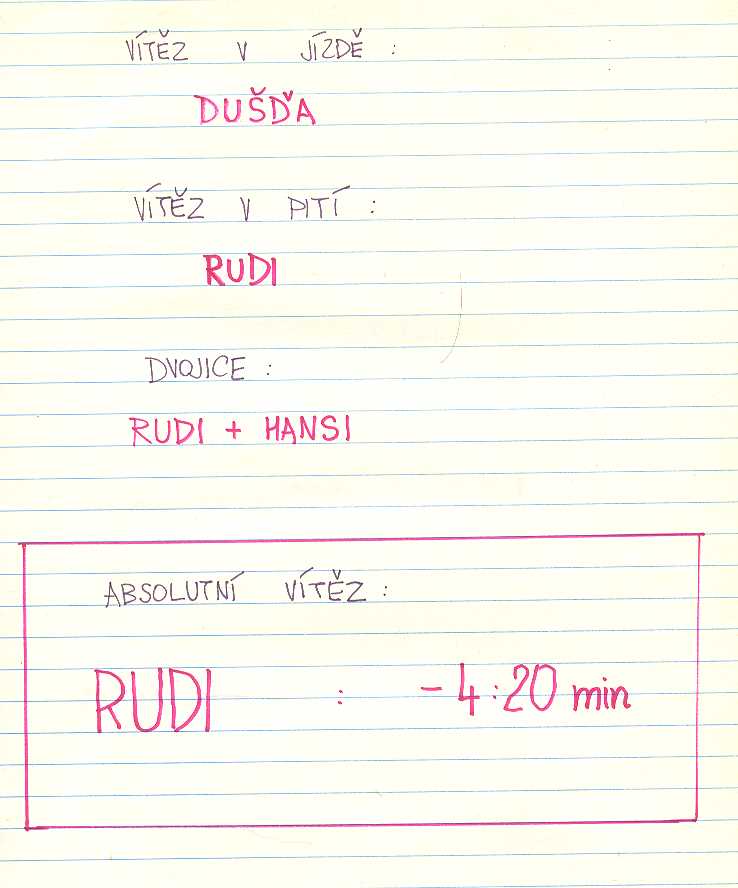 VÍTĚZ V JÍZDĚ :
DUŠĎA
VÍTĚZ V PITÍ :
RUDI
DVOJICE :
RUDI + HANSI
ABSOLUTNÍ VÍTĚZ :
RUDI : - 4:20 min